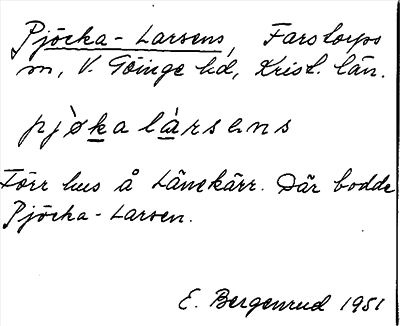 Pjöcka-Larsens, Farstorps
sn, V. Göinge hd, Krist. län.
pjö̀kalàrsens
Förr hus å Lönekärr. Där bodde
Pjöcka-Larsen.
E. Bergenrud 1951